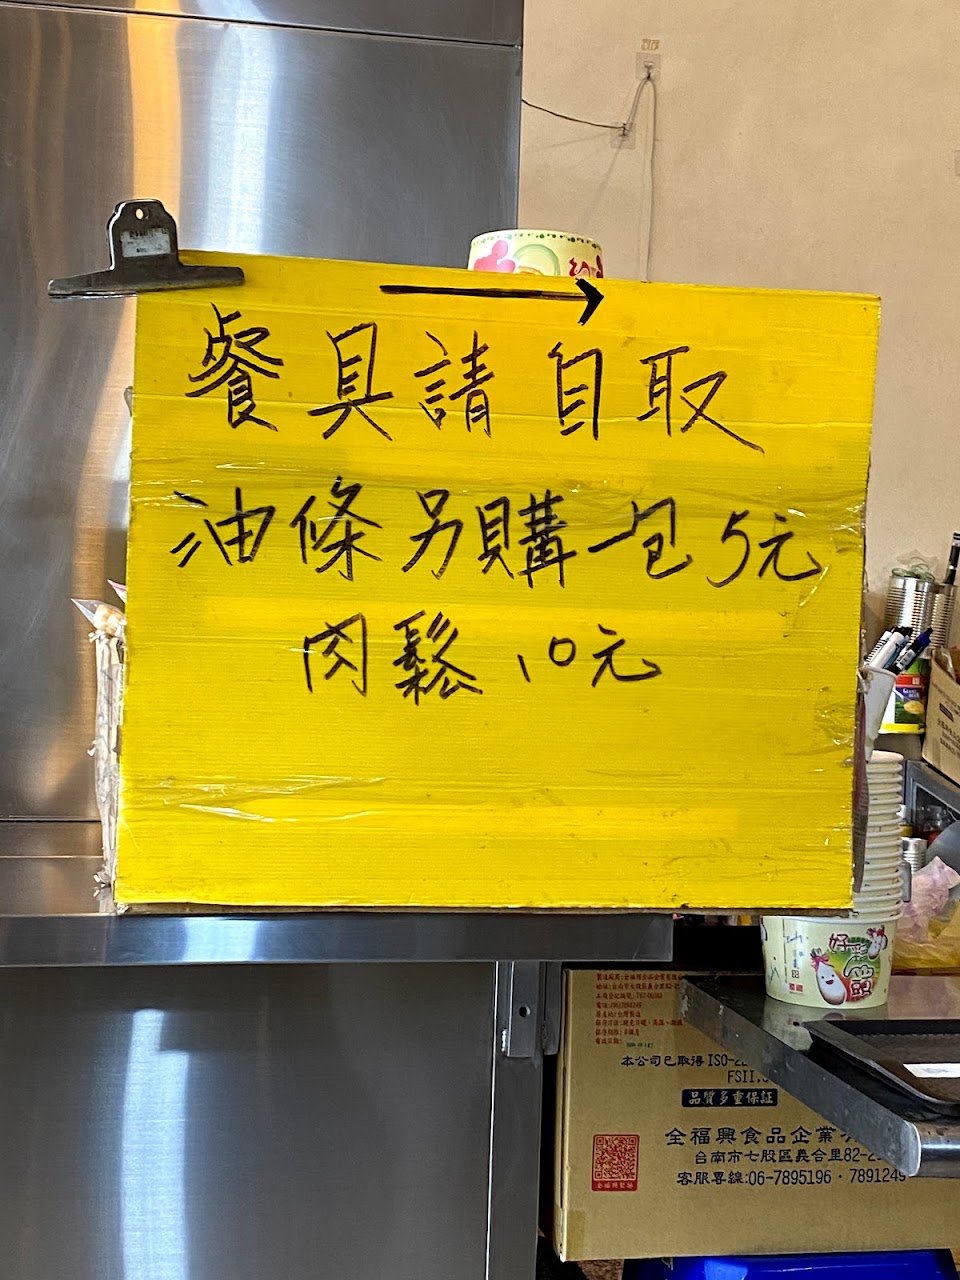 餐具請自取
油條另購一包5元
肉鬆10元
好彩頭
本公司已取得ISO-22
FSII
品質多重保証
全福興食品企業
台南市七股區義合里82-2
客服專線:06-7895196·7891249